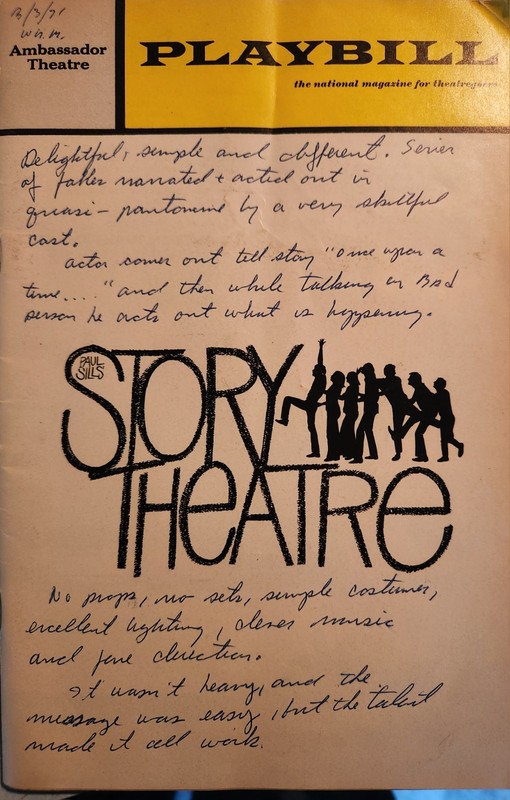 Ambassador
Theatre
PLAYBILL
the national magazine for theatregoers
Delightful, simple and different. Series
of fables narrated + acted out in
quasi-pantomime by a very skillful
cast.
actor comes out tell story "once upon a
time...." and then while talking in 3rd
person he acts out what is happening.
PAUL
SILLS'
STORY
THEATRE
No props, no sets, simple costumes,
excellent lighting, clever music
and fine direction.
It wasn't heavy, and the
message was easy, but the talent
made it all work.